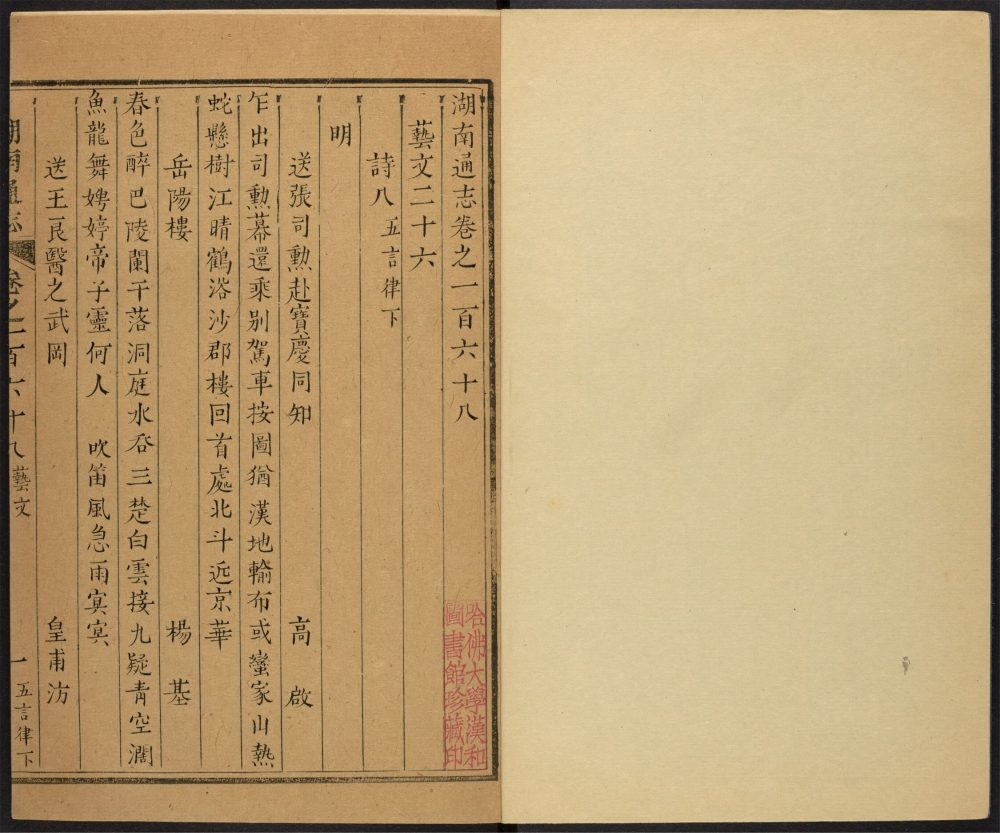 湖南通志卷之一百六十八
藝文二十六
詩八 五言律下
明
送張司勲赴寶慶同知 高啟
乍出司勲幕還乘别駕車按圖猶漢地輸布或蠻家山熱
蛇懸樹江晴鶴浴沙郡樓回首處北斗近京華
岳陽樓 楊基
春色醉巴陵闌干落洞庭水吞三楚白雲接九疑青空濶
魚龍舞娉婷帝子靈何人 吹笛風急雨寞寞
送王良醫之武岡 皇甫汸
湖南通志 卷之一百六十八藝文 一 五言律下
哈佛大學漢和
圖書館珍藏印